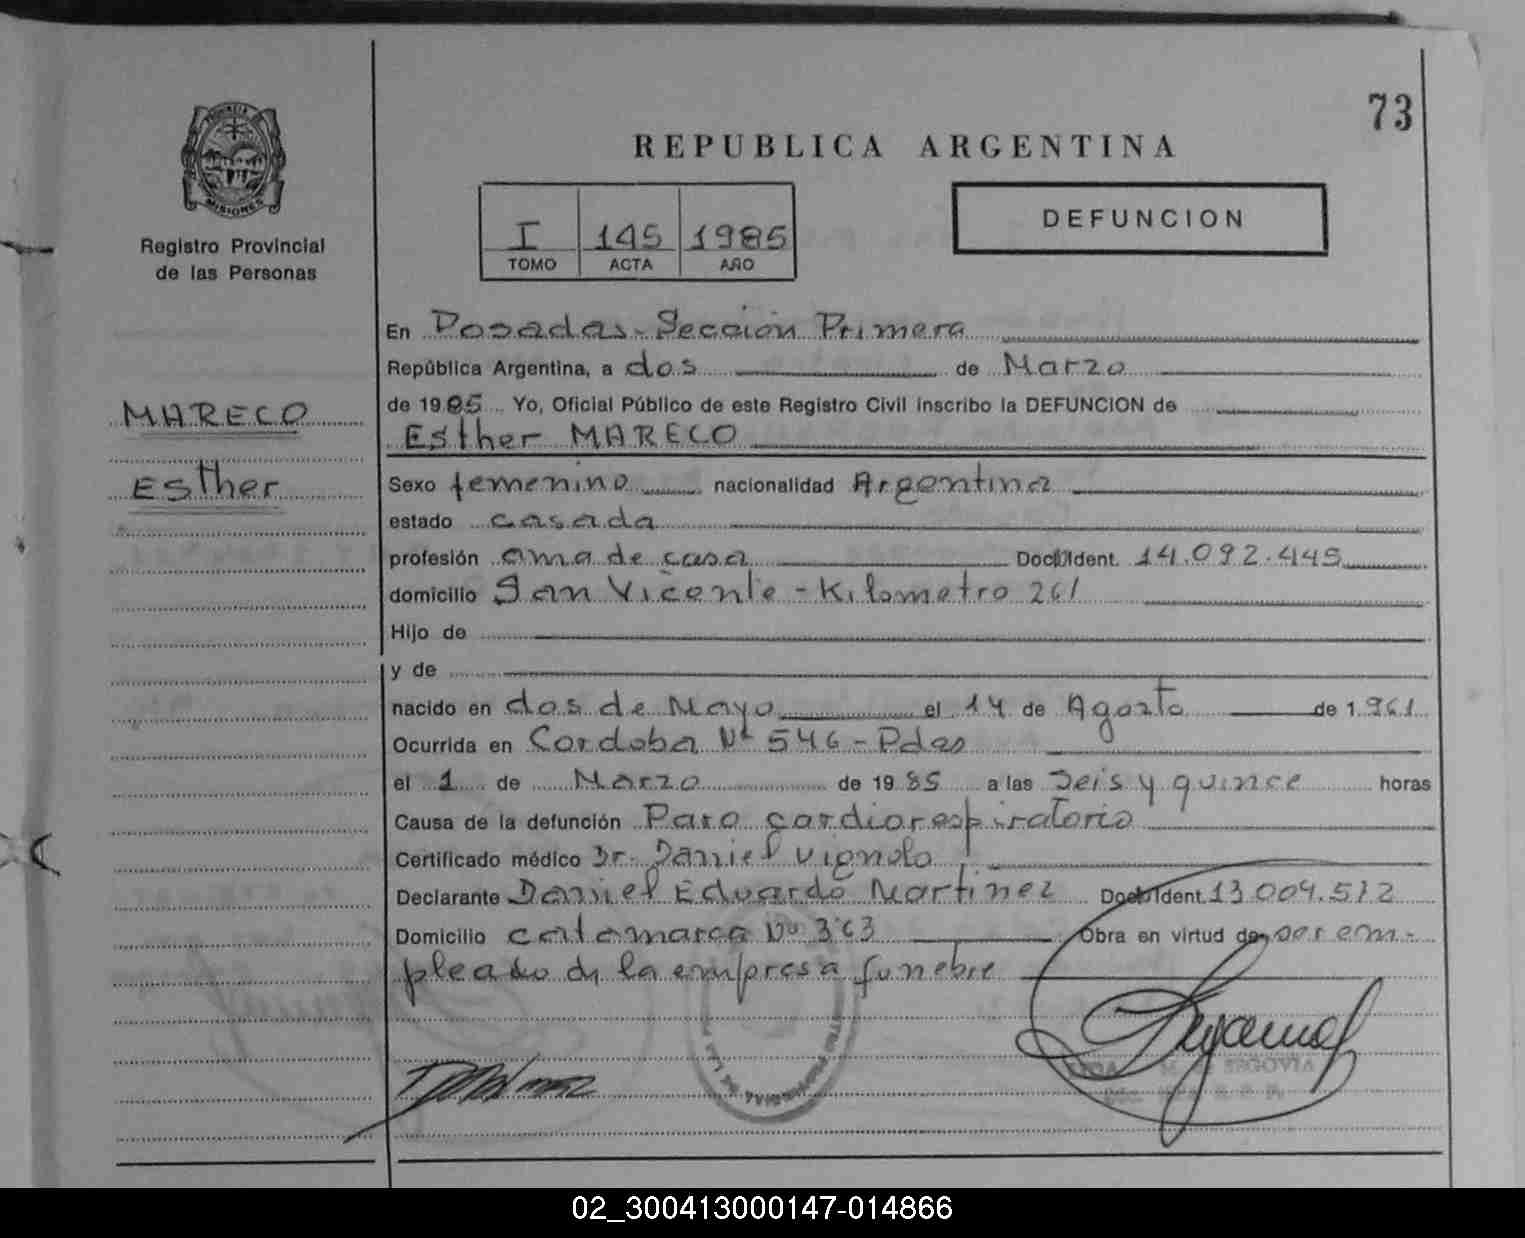 73
REPUBLICA ARGENTINA
PROVINCIA DE
MISIONES
Registro Provincial
de las Personas
I 145 1985
TOMO ACTA AÑO
DEFUNCION
MARECO
Esther
En Posadas - Sección Primera
República Argentina, a dos de Marzo
de 1985 Yo, Oficial Público de este Registro Civil inscribo la DEFUNCION de
Esther MARECO
Sexo femenino nacionalidad Argentina
estado casada
profesión ama de casa Doc. Ident. 14.092.445
domicilio San Vicente - Kilometro 261
Hijo de
y de
nacido en dos de Mayo el 14 de Agosto de 1.961
Ocurrida en Cordoba Nº 546 - Pdas
el 1 de Marzo de 1985 a las Seis y quince horas
Causa de la defunción Paro cardiorespiratorio
Certificado médico Dr. Daniel Vignolo
Declarante Daniel Eduardo Martinez Doc. Ident. 13.004.512
Domicilio catamarca Nº 363 Obra en virtud de ser em-
pleado de la empresa funebre
SEGOVIA
02_300413000147-014866